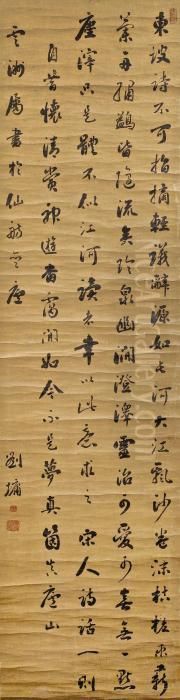 東坡詩不可指摘輕議辭源如長河大江飄沙卷沫枯槎束薪
蘭舟繡鷁皆隨流矣珍泉幽澗澄澤靈沼可愛可喜無一點
塵滓只是體不似江河讀者幸以此意求之 宋人詩話一則
自昔懷清賞神遊杳靄間如今不是夢真箇在廬山
洲屬書於仙舫廬
劉墉